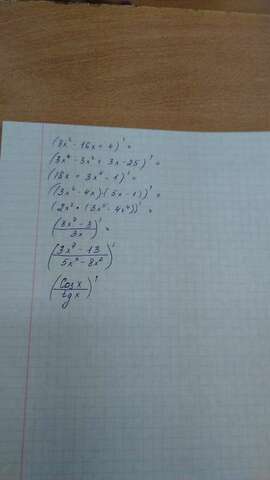 (3x² - 16x + 4)' =
(3x⁴ - 5x² + 3x - 25)' =
(15x + 3x⁴ - 1)' =
((3x² - 4x)·(5x - 1))' =
(2x² · (3x⁵ - 4x⁴))' =
((3x² - 3)/(3x))' =
((3x² - 13)/(5x⁴ - 8x²))'
((Cos x)/(tg x))'